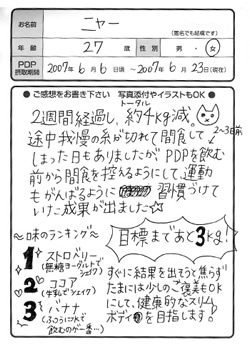 お名前 ニャー (匿名でも結構です)
年齢 27歳 性別 男・女
PDP摂取期間 2007年6月6日頃 ～ 2007年6月23日(現在)
●ご感想をお書き下さい 写真添付やイラストもOK●
トータル
2週間経過し、約4kg減。
途中我慢の糸が切れて間食して
しまった日もありましたが PDPを飲む 2～3日前
前から間食を控えるようにして、運動
もがんばるように 習慣づけて
いた成果が出ました☆
～味のランキング～
1 ストロベリー
(無糖ヨーグルトでシェイク)
2 ココア
(牛乳でシェイク)
3 バナナ
(ふつうに水で飲むのが一番…)
目標まであと3kg!
すぐに結果を出そうと焦らず
たまには少しのご褒美もOK
にして、健康的なスリム
ボディを目指します